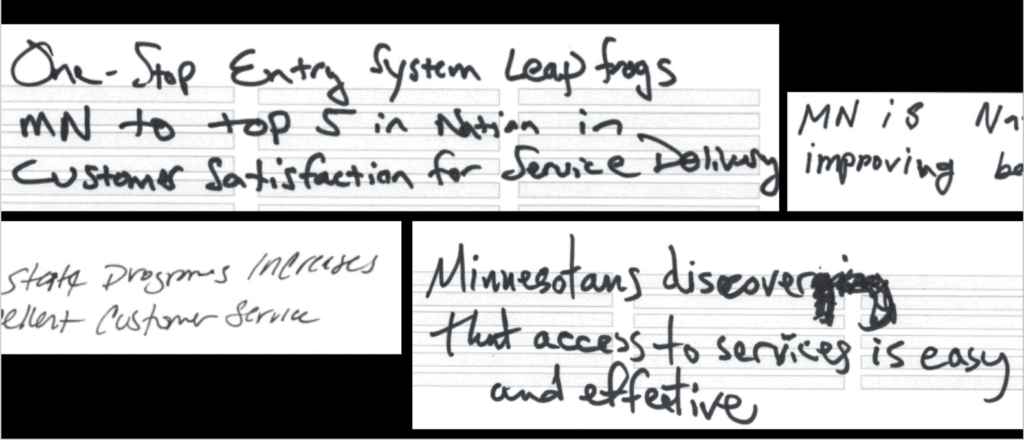 One-Stop Entry System Leap frogs
MN to top 5 in Nation in
Customer Satisfaction for Service Delivery
MN is Na
improving be
State Programs Increases
ellent Customer Service
Minnesotans discovering
that access to services is easy
and effective